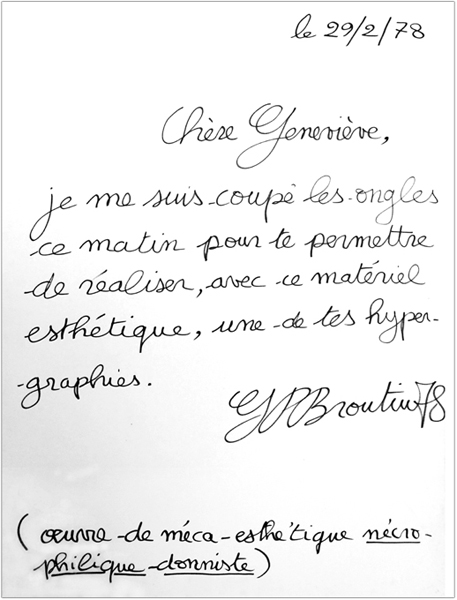 le 29/2/78
Chère Geneviève,
je me suis coupé les ongles
ce matin pour te permettre
de réaliser, avec ce matériel
esthétique, une de tes hyper-
-graphies.
GP Broutin 78
(œuvre de méca-esthétique nécro-
philique donniste)